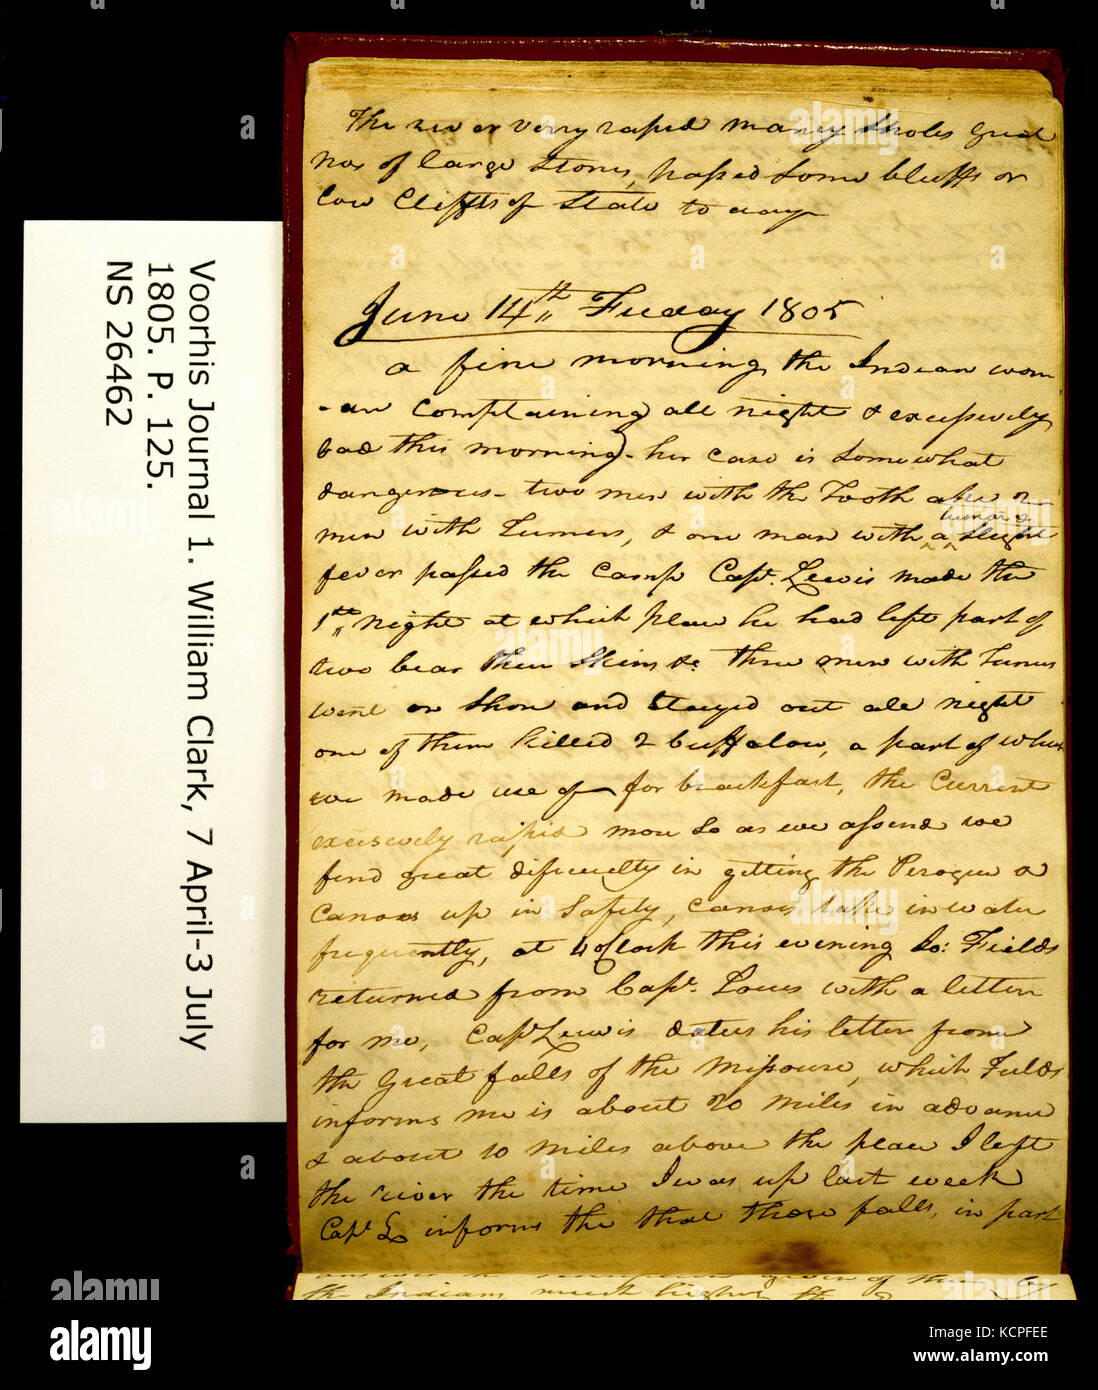 The river verry rapid maney Sholes great
nos of large Stones, passed Some bluffs or
low Cliffts of Slate to day
June 14th Friday 1805
a fine morning, the Indian wom
-an complaining all night & excessively
bad this morning - her case is Somewhat
dangerous - two men with the Tooth ake 2
men with Tumers, & one man with a Tumor & Slight
fever passed the Camp Capt. Lewis made the
1st night at which place he had left part of
two bear their Skins &c three men with Tumers
went on Shore and Stayed out all night
one of them killed 2 buffalow, a part of which
we made use of for brackfast, the Current
excesevely rapid more So as we assend we
find great difficuelty in getting the Perogue &
Canoes up in Safty, Canoes take in water
frequently, at 4 oClock this evening Jo: Fields
returned from Capt. Lewis with a letter
for me, Capt Lewis dates his letter from
the Great falls of the Missouri, which Fields
informs me is about 20 miles in advance
& about 10 miles above the place I left
the river the time I was up last week
Capt. L. informs the that those falls, in part
the Indians much higher
Voorhis Journal 1. William Clark, 7 April-3 July
1805. P. 125.
NS 26462
alamy
Image ID: KCPFEE
www.alamy.com